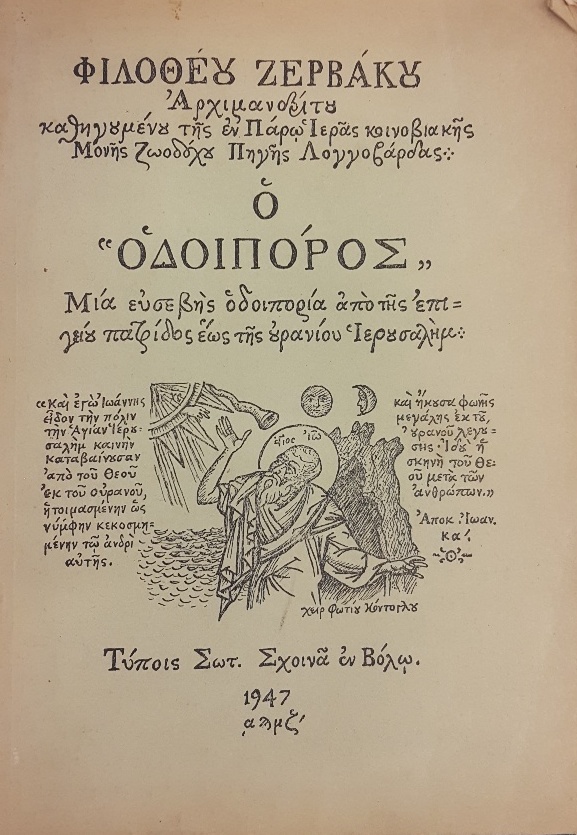 ΦΙΛΟΘΕΟΥ ΖΕΡΒΑΚΟΥ
Ἀρχιμανδρίτου
καθηγουμένου τῆς ἐν Πάρῳ Ἱερᾶς κοινοβιακῆς
Μονῆς Ζωοδόχου Πηγῆς Λογγοβάρδας
Ὁ
“ὉΔΟΙΠΟΡΟΣ„
Μία εὐσεβὴς ὁδοιπορία ἀπὸ τῆς ἐπι=
γείου πατρίδος ἕως τῆς οὐρανίου Ἱερουσαλὴμ
“Καὶ ἐγὼ Ἰωάννης
εἶδον τὴν πόλιν
τὴν Ἁγίαν Ἱερου=
σαλὴμ καινὴν
καταβαίνουσαν
ἀπὸ τοῦ Θεοῦ
ἐκ τοῦ οὐρανοῦ,
ἡτοιμασμένην ὡς
νύμφην κεκοσμη=
μένην τῷ ἀνδρὶ
αὐτῆς.
καὶ ἤκουσα φωνῆς
μεγάλης ἐκ τοῦ
οὐρανοῦ λεγού=
σης· Ἰδοὺ ἡ
σκηνὴ τοῦ Θε=
οῦ μετὰ τῶν
ἀνθρώπων.„
Ἀποκ. Ἰωαν.
κα΄.
ἅγιος Ἰω
χεὶρ Φωτίου Κόντογλου
Τύποις Σωτ. Σχοινᾶ ἐν Βόλῳ.
1947
͵αϡμζ΄